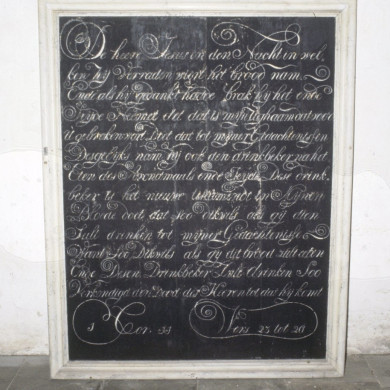 De heere Jesus in den Nacht in wel
ken hy verraden wiert het brood nam
Ende als hy gedankt hadde Brak hy het ende
Zeyde Neemet etet dat is myn lichaam wat voor
U gebroken wort Doet dat tot myner Gedachtenissen
Desgelyks nam hy ook den drinkbeker na het
Eten des Avondmaals ende Seyde Dese drink
beker is het nieuwe testament in Mynen
Bloede doet dat soo dikwils als gy dien
Sult drinken tot myner Gedachtenisse
Want soo Dikwils als gy dit brood sult eten
Ende Desen Drinkbeker Sult drinken Soo
Verkondigd den Dood des Heeren tot dat hy komt
1 Cor Vers 23 tot 26